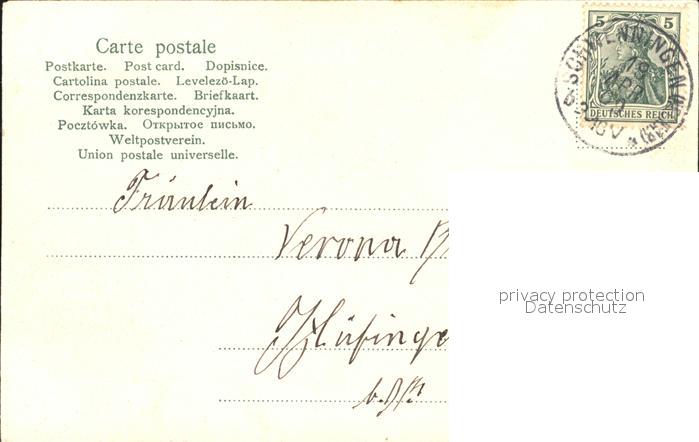 Carte postale
Postkarte. Post card. Dopisnice.
Cartolina postale. Levelező-Lap.
Correspondenzkarte. Briefkaart.
Karta korespondencyjna.
Pocztówka. Открытое письмо.
Weltpostverein.
Union postale universelle.
5 5
DEUTSCHES REICH
SCHWENNINGEN
19
APR
Fräulein
Verona
privacy protection
Datenschutz
Hüfinge